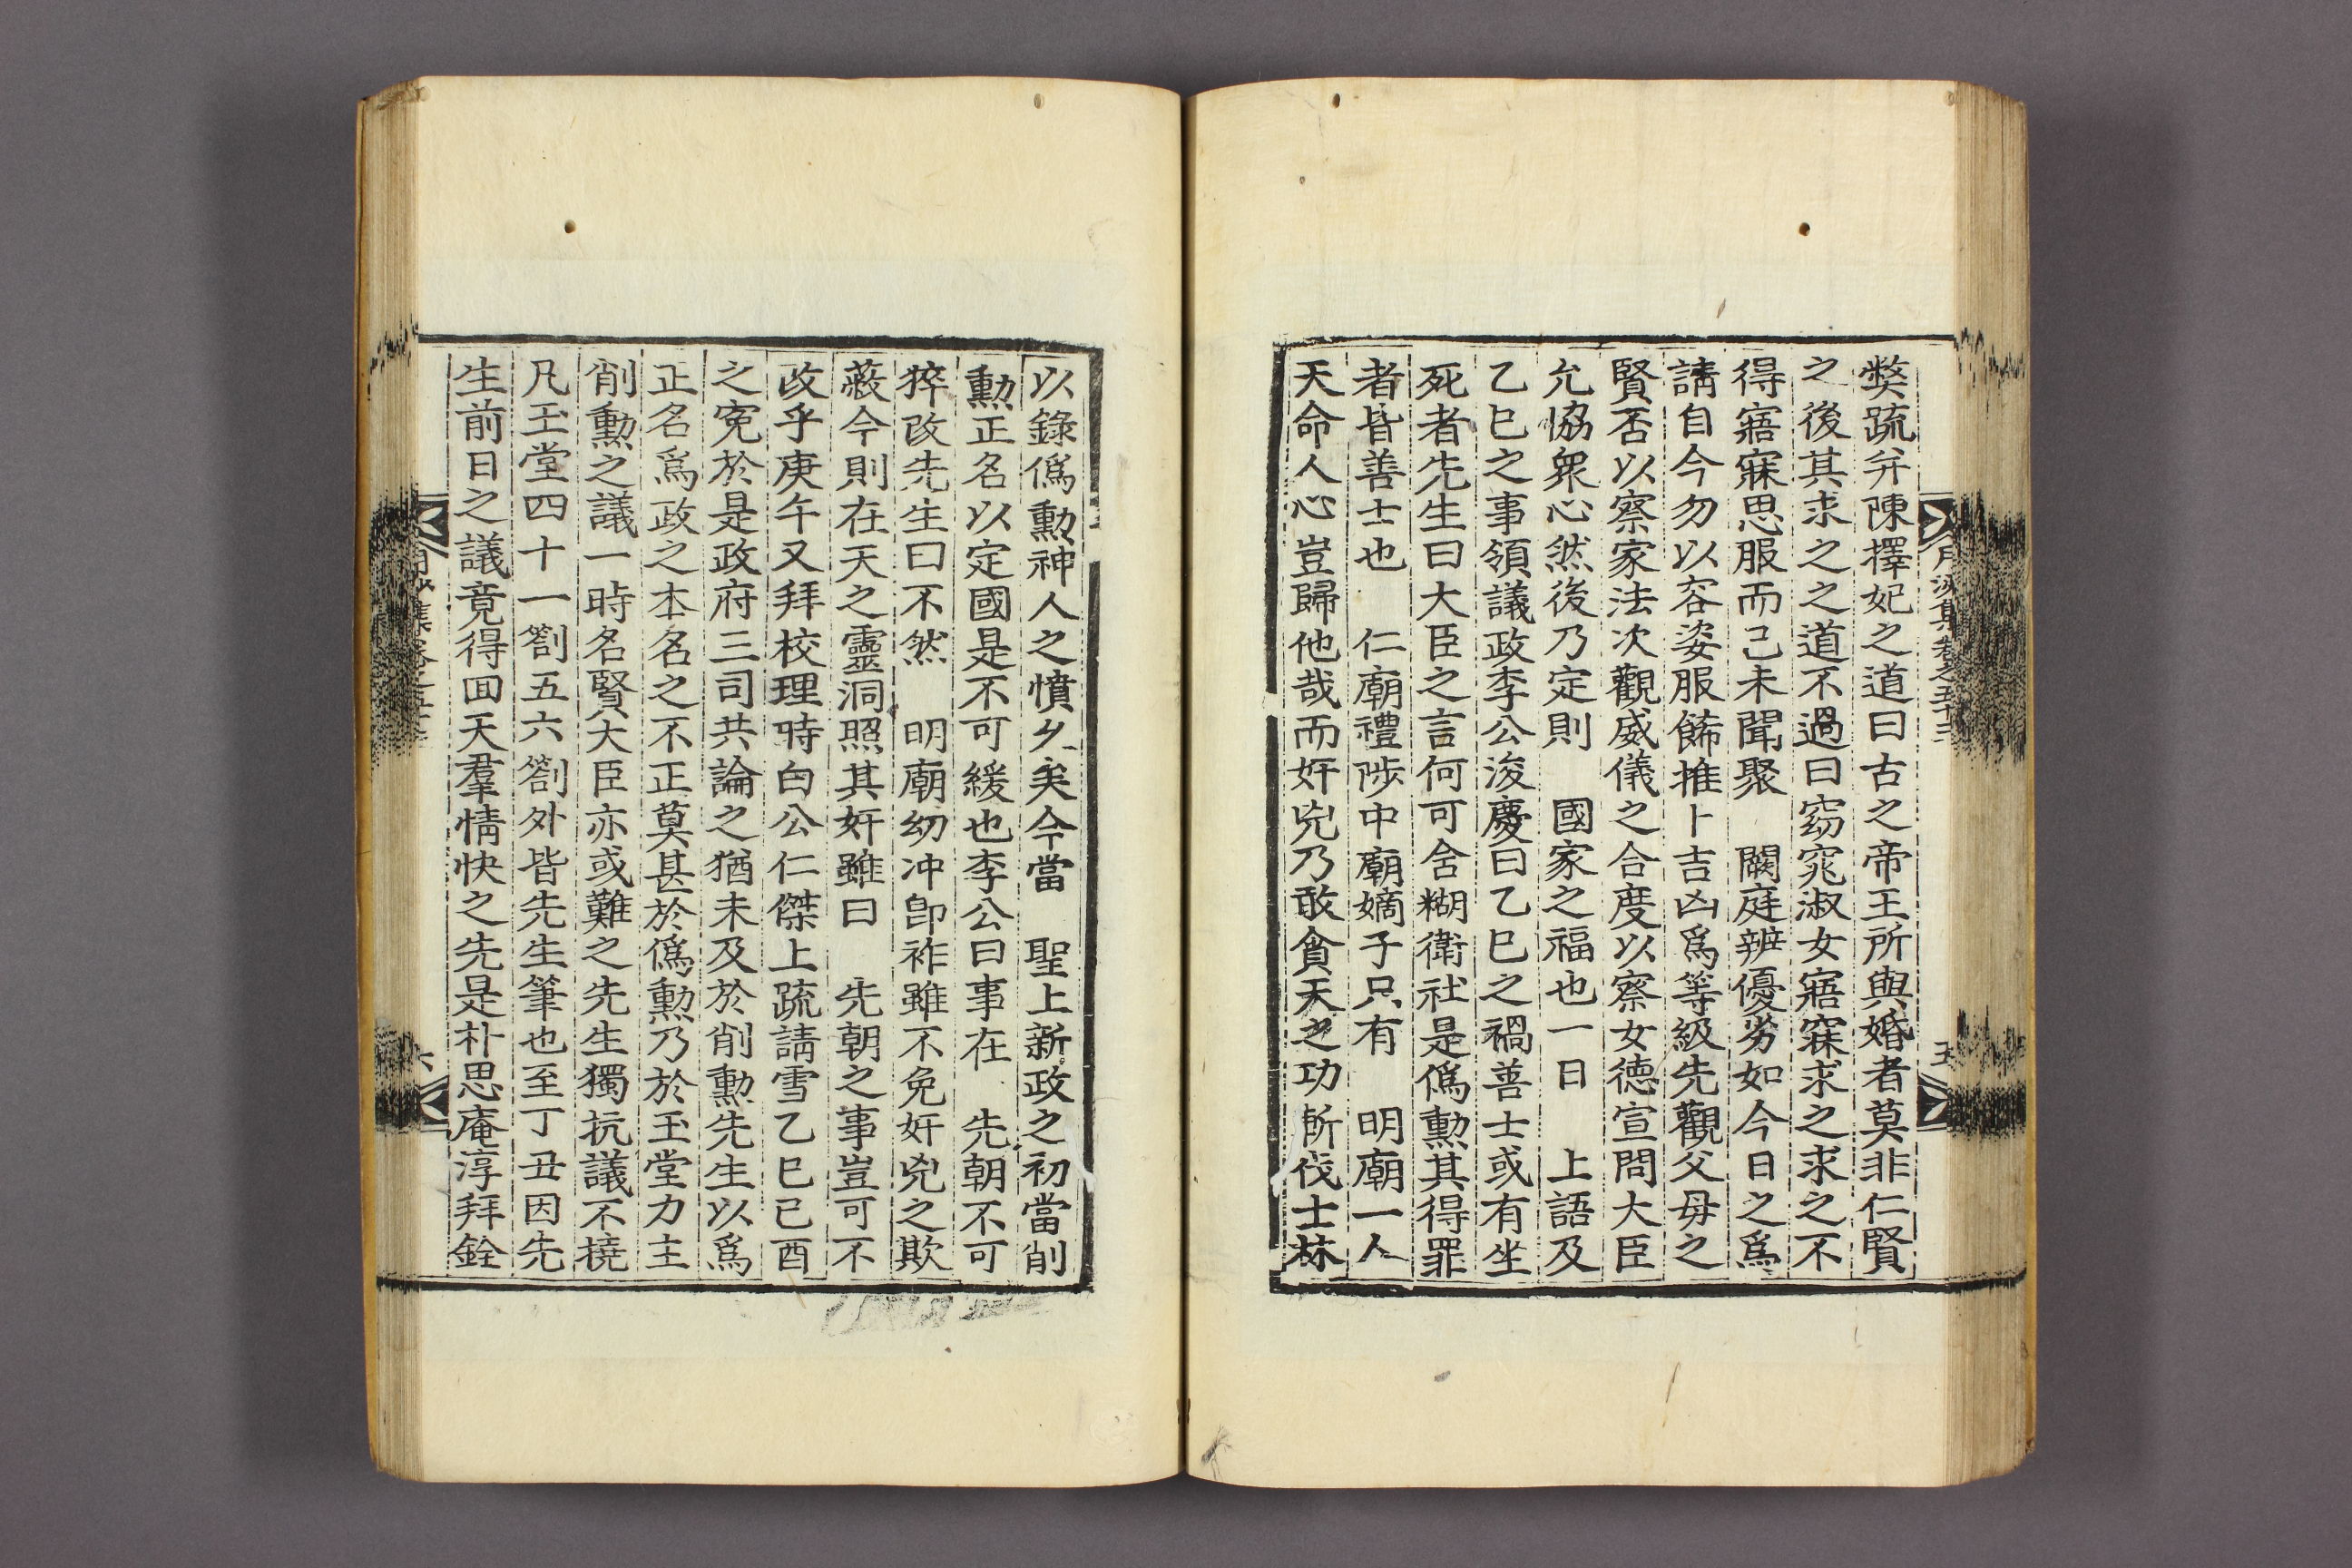 月沙集卷之五十三
五
獘疏并陳擇妃之道曰古之帝王所與婚者莫非仁賢
之後其求之之道不過曰窈窕淑女寤寐求之求之不
得寤寐思服而己未聞聚　闕庭辨優劣如今日之爲
請自今勿以容姿服餙推卜吉凶爲等級先觀父母之
賢否以察家法次觀威儀之合度以察女德宣問大臣
允協衆心然後乃定則　國家之福也一日　上語及
乙巳之事領議政李公浚慶曰乙巳之禍善士或有坐
死者先生曰大臣之言何可含糊衛社是僞勳其得罪
者皆善士也　仁廟禮陟中廟嫡子只有　明廟一人
天命人心豈歸他哉而奸兇乃敢貪天之功斬伐士林
以錄僞勳神人之憤久矣今當　聖上新政之初當削
勳正名以定國是不可緩也李公曰事在　先朝不可
猝改先生曰不然　明廟幼冲卽祚雖不免奸兇之欺
蔽今則在天之靈洞照其奸雖曰　先朝之事豈可不
改乎庚午又拜校理時白公仁傑上疏請雪乙巳己酉
之寃於是政府三司共論之猶未及於削勳先生以爲
正名爲政之本名之不正莫甚於僞勳乃於玉堂力主
削勳之議一時名賢大臣亦或難之先生獨抗議不撓
凡玉堂四十一劄五六劄外皆先生筆也至丁丑因先
生前日之議竟得回天羣情快之先是朴思庵淳拜銓
六